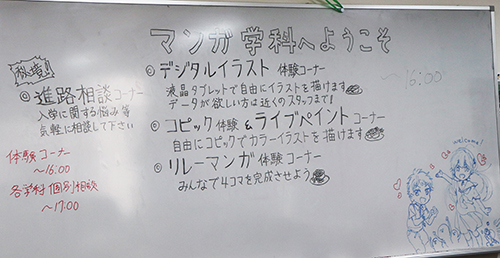 マンガ学科へようこそ
◎デジタルイラスト 体験コーナー
液晶タブレットで自由にイラストを描けます
データが欲しい方は近くのスタッフまで!
◎コピック体験&ライブペイントコーナー
自由にコピックでカラーイラストを描けます
◎リレーマンガ体験コーナー
みんなで4コマを完成させよう
◎進路相談コーナー
入学に関する悩み等
気軽に相談して下さい
体験コーナー
〜16:00
各学科個別相談
〜17:00
〜16:00
welcome!